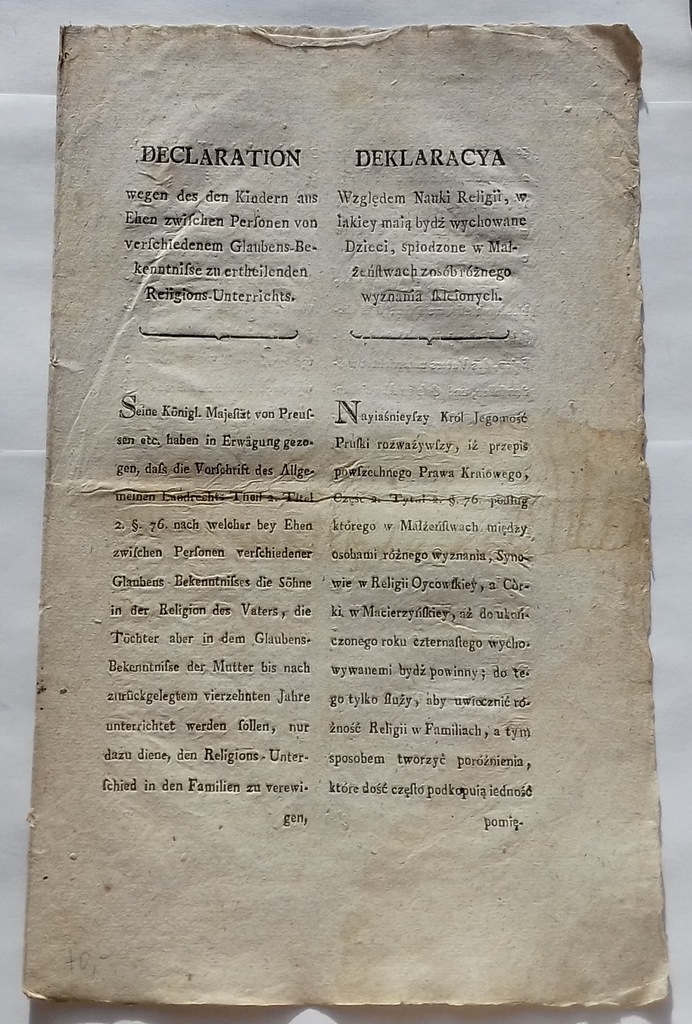 DECLARATION
wegen des den Kindern aus
Ehen zwiſchen Perſonen von
verſchiedenem Glaubens-Be-
kenntniſse zu ertheilenden
Religions-Unterrichts.
Seine Königl. Majeſtät von Preuſ-
sen etc. haben in Erwägung gezo-
gen, daſs die Vorſchrift des Allge-
meinen Landrechts Theil 2. Titel
2. §. 76. nach welcher bey Ehen
zwiſchen Perſonen verſchiedener
Glaubens-Bekenntniſses die Söhne
in der Religion des Vaters, die
Töchter aber in dem Glaubens-
Bekenntniſse der Mutter bis nach
zurückgelegtem vierzehnten Jahre
unterrichtet werden ſollen, nur
dazu diene, den Religions-Unter-
ſchied in den Familien zu verewi-
gen,
DEKLARACYA
Względem Nauki Religii, w
iakiey maią bydź wychowane
Dzieci, spłodzone w Mał-
żeńſtwach z osób różnego
wyznania ſkleionych.
Nayiaśnieyſzy Król Jegomość
Pruſki rozważywſzy, iż przepis
powſzechnego Prawa Kraiowego,
Część 2. Tytuł 2. §. 76. podług
którego w Małżeńſtwach między
osobami różnego wyznania, Syno-
wie w Religii Oycowſkiey, a Cór-
ki w Macierzyńſkiey, aż do ukoń-
czonego roku czternaſtego wycho-
wywanemi bydź powinny; do te-
go tylko ſłuży, aby uwiecznić ró-
żność Religii w Familiach, a tym
sposobem tworzyć poróżnienia,
które dość częſto podkopuią iedność
pomię-